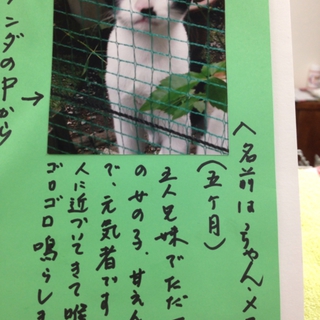 〈名前はうちゃん・メス
(五ケ月)
五人兄妹でただ一
の女の子、甘えん
で、元気者です
人に近づいてきて喉
ゴロゴロ鳴らしま
ンダの中から
→